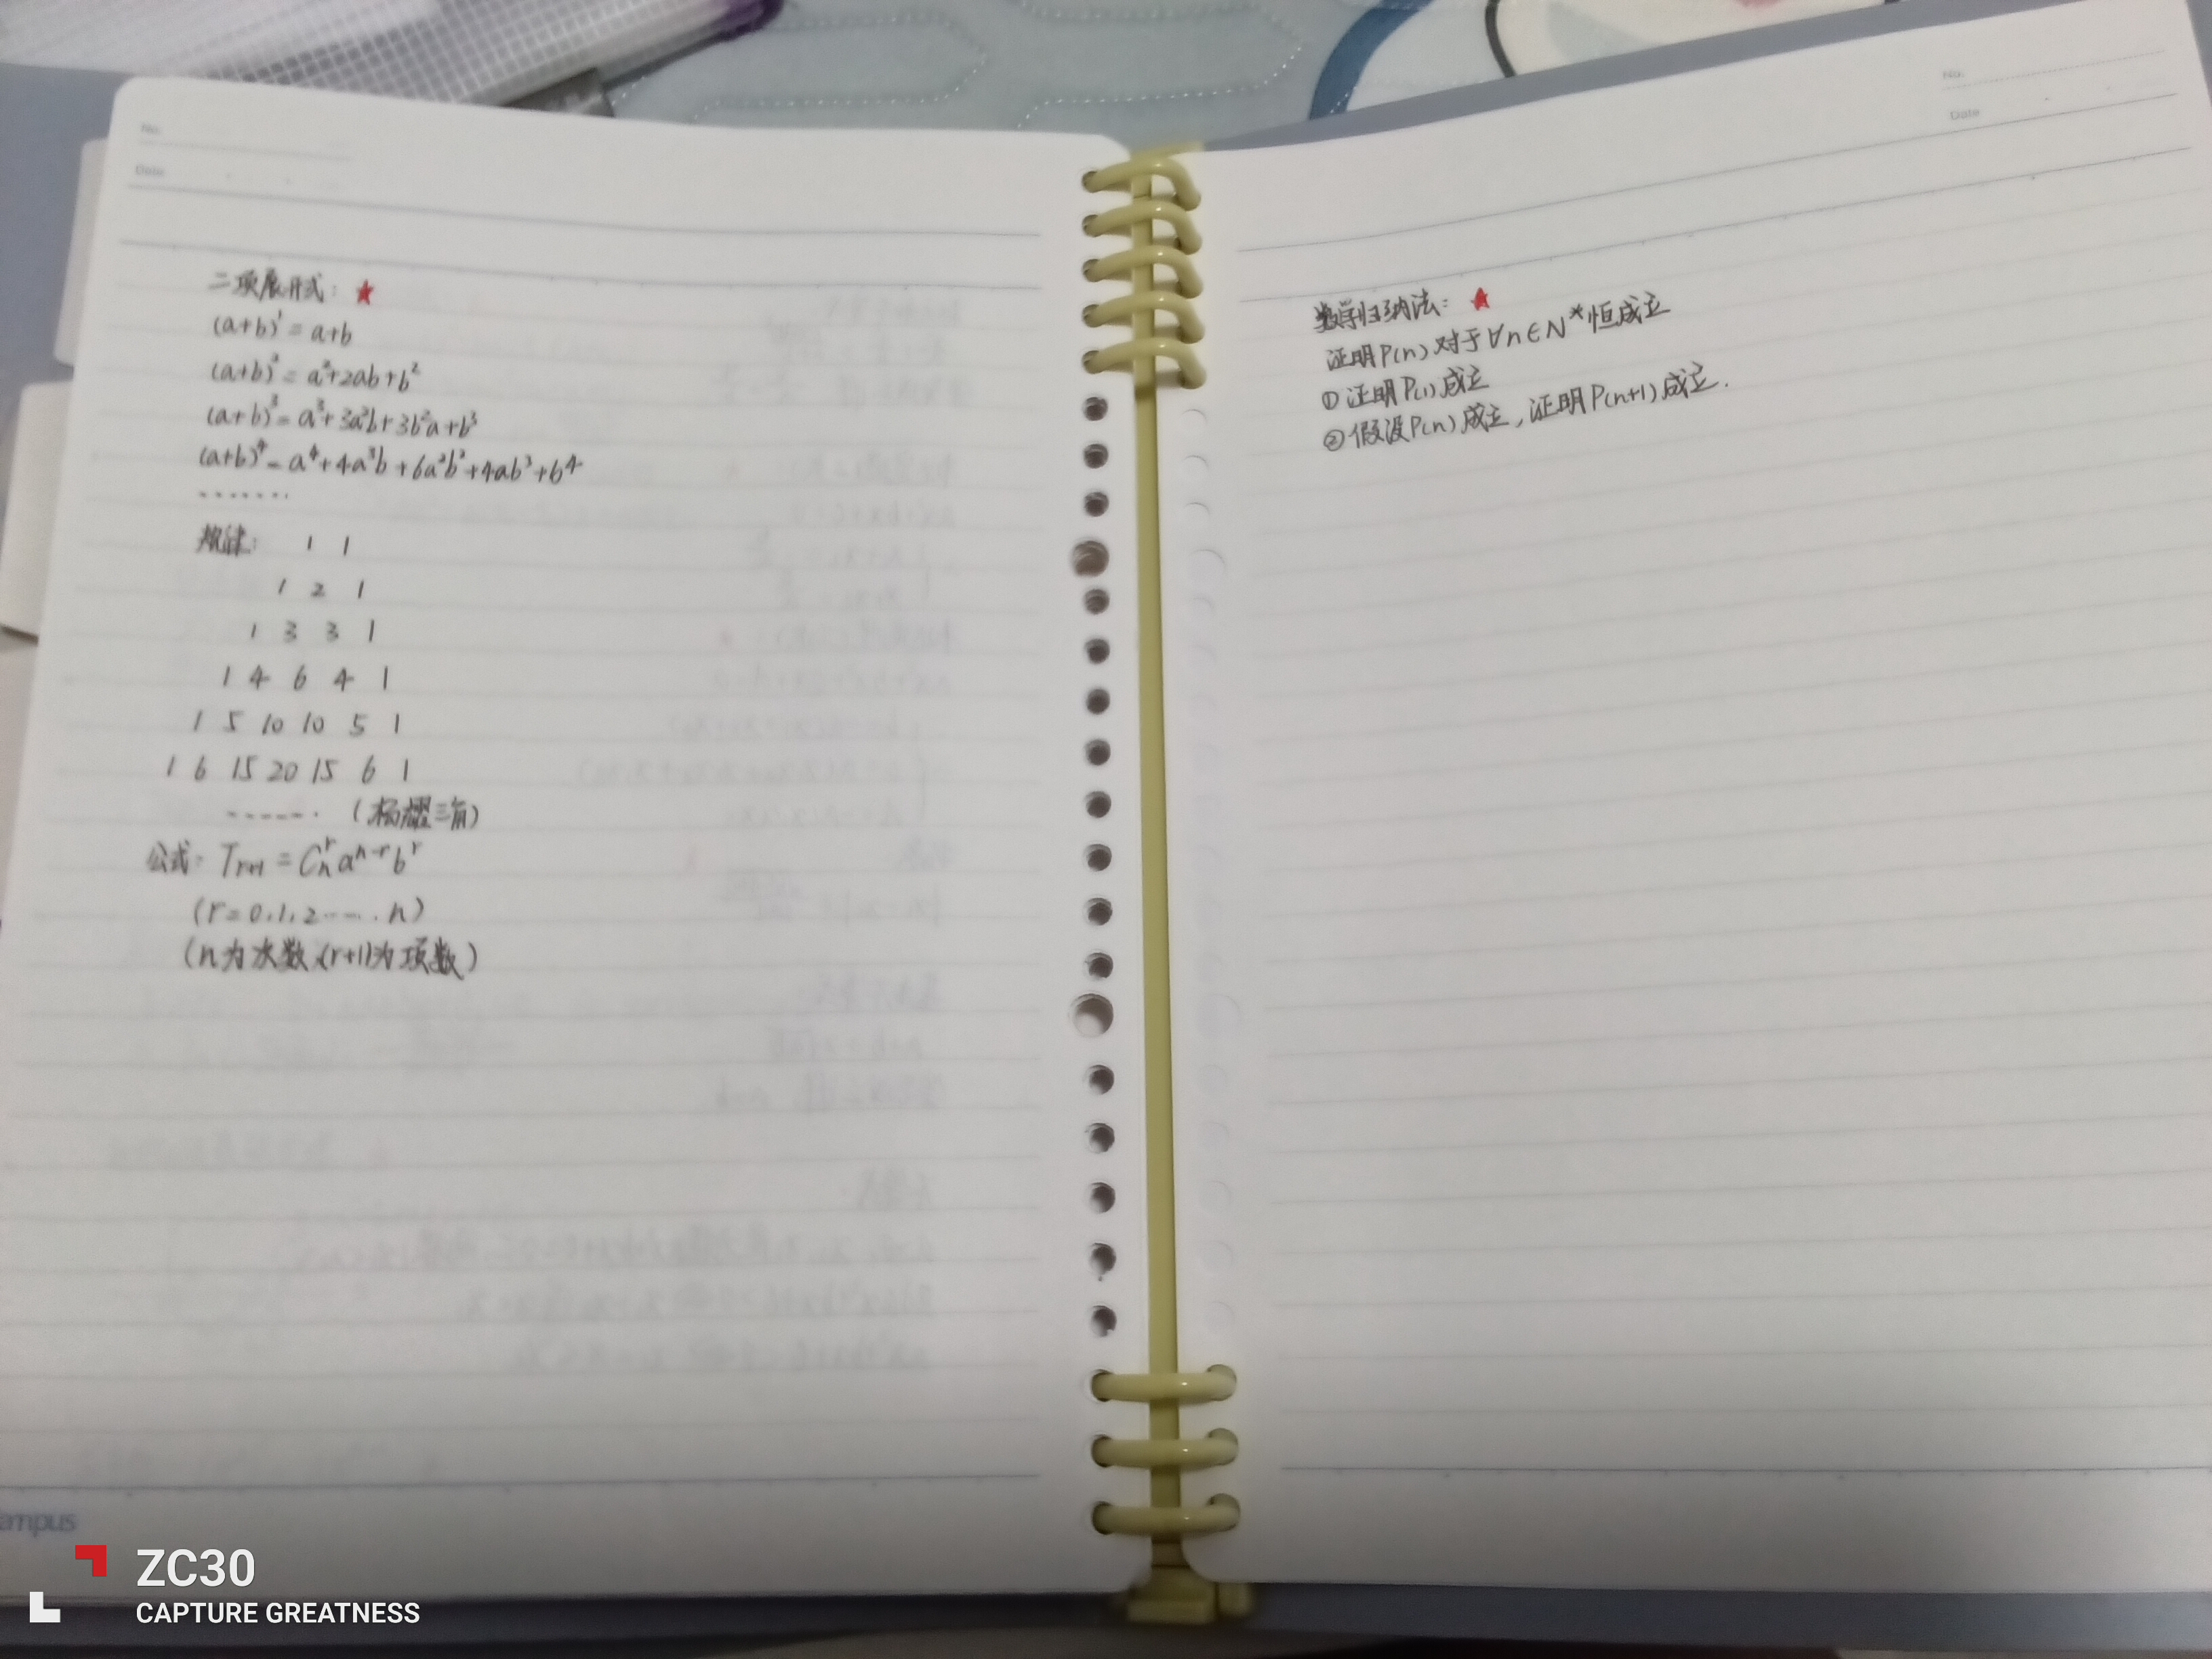 No.
Date
二项展开式：★
(a+b)¹ = a+b
(a+b)² = a²+2ab+b²
(a+b)³ = a³+3a²b+3b²a+b³
(a+b)⁴ = a⁴+4a³b+6a²b²+4ab³+b⁴
.......
规律： 1 1
1 2 1
1 3 3 1
1 4 6 4 1
1 5 10 10 5 1
1 6 15 20 15 6 1
....... (杨耀三角)
公式：Tᵣ₊₁ = Cₙʳaⁿ⁻ʳbʳ
(r=0,1,2.....n)
(n为次数,(r+1)为项数)
ampus
No.
Date
数学归纳法：★
证明P(n)对于∀n∈N*恒成立
①证明P(1)成立
②假设P(n)成立,证明P(n+1)成立.
ZC30
CAPTURE GREATNESS